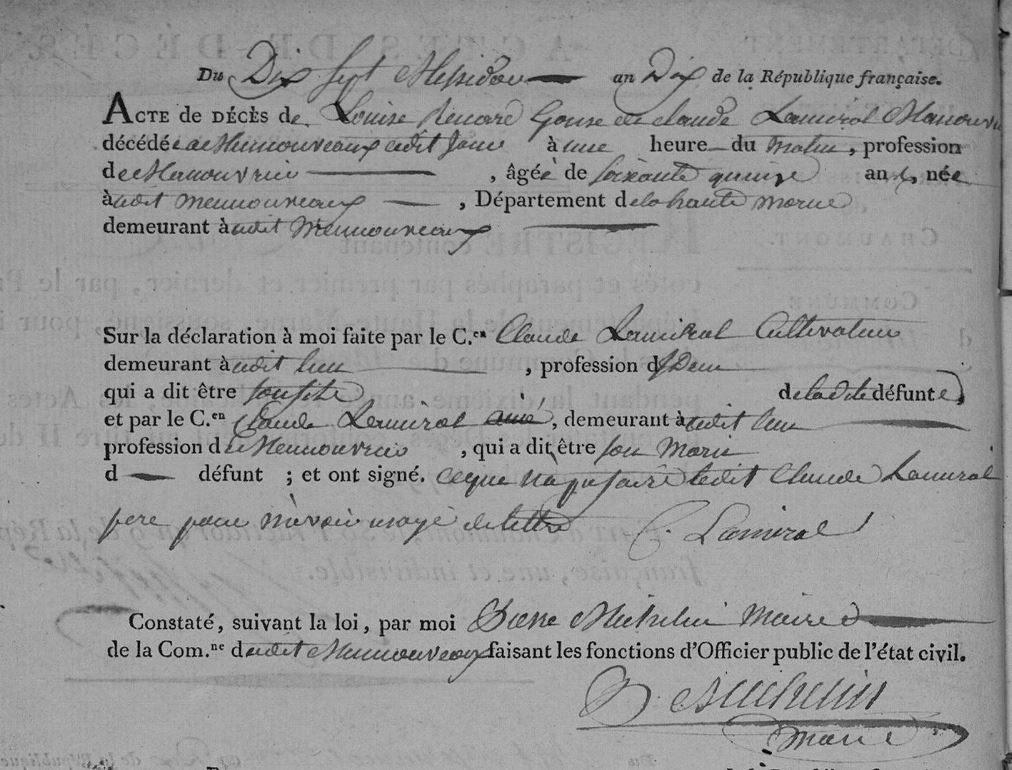 Du Dix Sept Messidor an Dix de la République française.
ACTE DE DÉCÈS de Louise Renard Epouse de Claude Lamiral Manouvrie
décédée a Mennouveaux cedit Jour à une heure du matin, profession
de Manouvrier, âgée de soixante quinze ans, née
à audit Mennouveaux, Département de la haute Marne
demeurant à audit Mennouveaux
Sur la déclaration à moi faite par le C.en Claude Lamiral Cultivateur
demeurant à audit lieu, profession d Idem
qui a dit être son fils de la dite défunte,
et par le C.en Claude Lamiral, demeurant à audit lieu
profession de Mennouvrier, qui a dit être son Marie
d défunt ; et ont signé. ce que n'a pu faire ledit Claude Lamiral
pere pour n'avoir usage de lettre C. Lamiral
Constaté, suivant la loi, par moi Pierre Michelin Maire
de la Com.ne dudit Mennouveaux faisant les fonctions d'Officier public de l'état civil.
P. Michelin
Maire